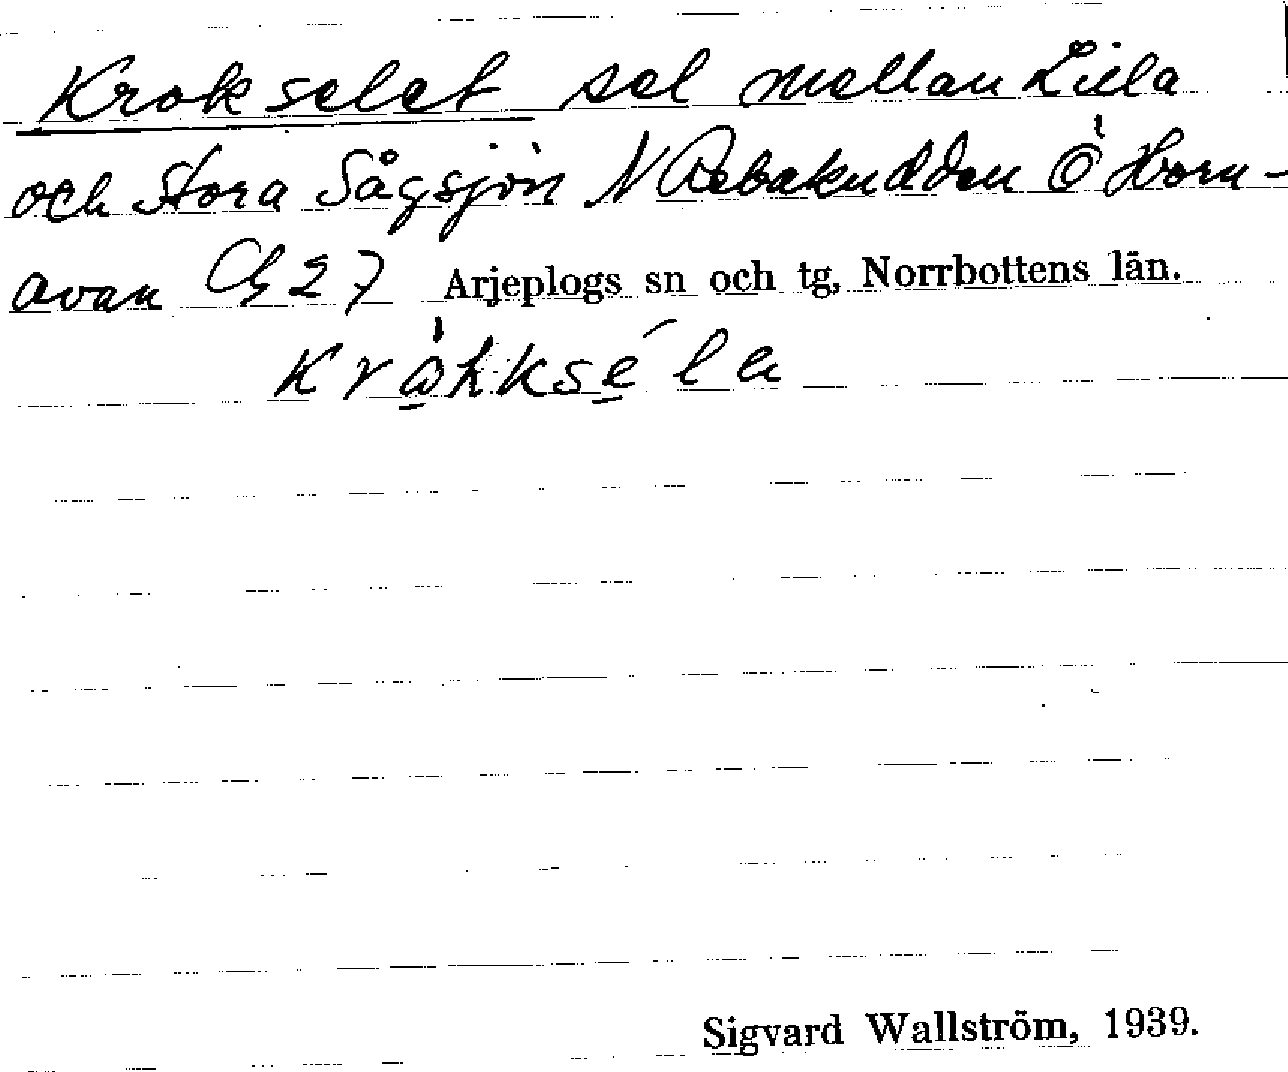 Krokselet sel mellan Lilla
och Stora Sågsjön N Rebakudden Ö Horn-
avan Ch 27 Arjeplogs sn och tg, Norrbottens län.
Sigvard Wallström, 1939.